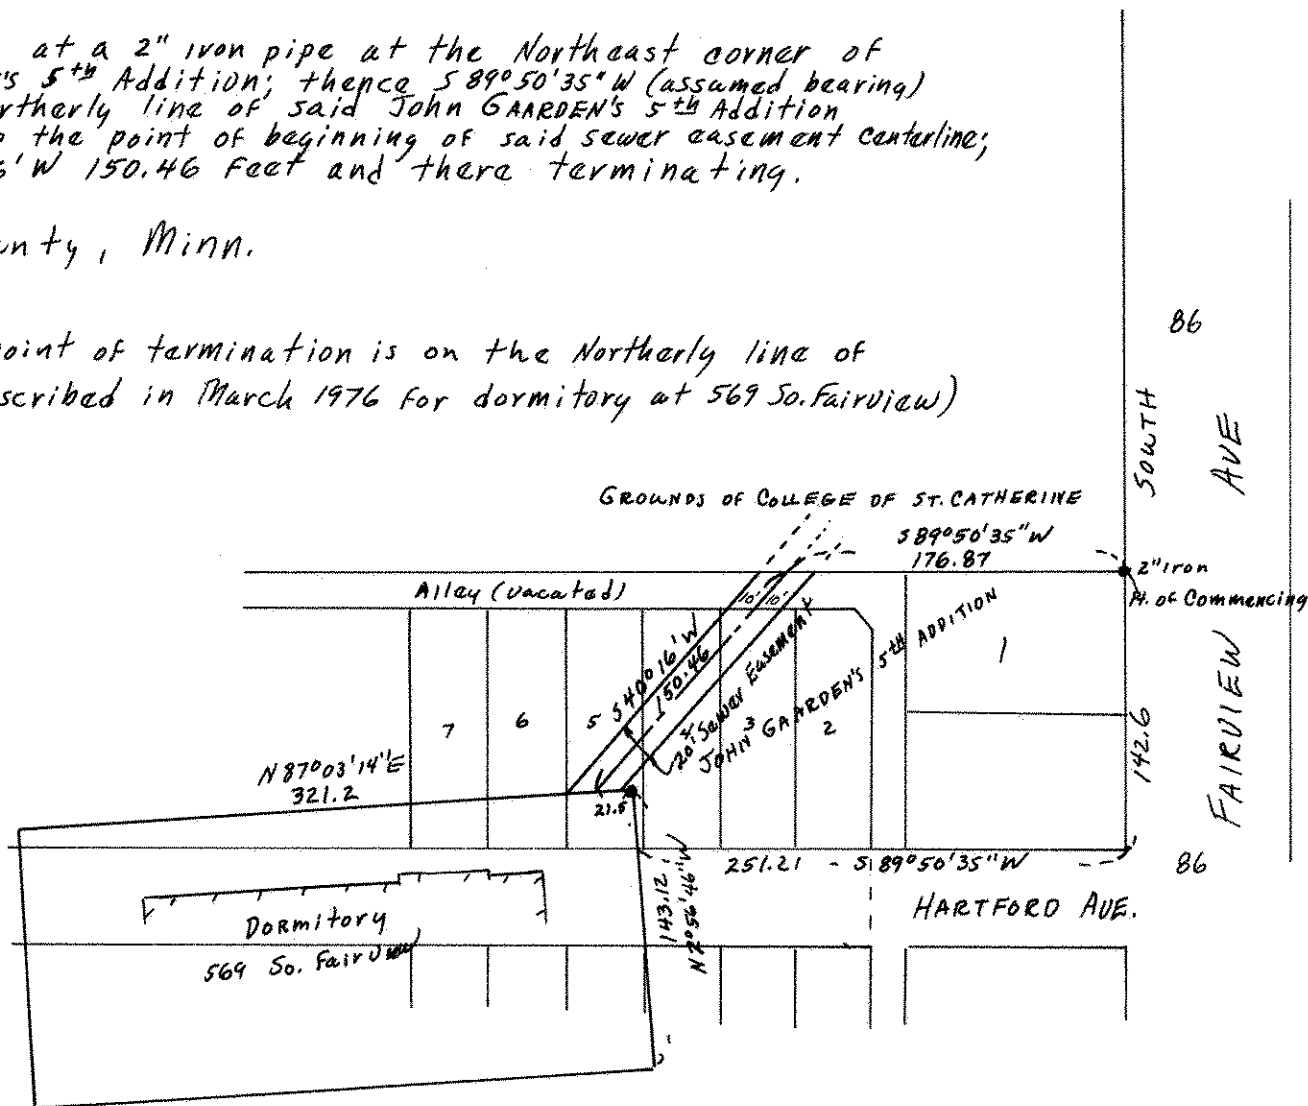 at a 2" iron pipe at the Northeast corner of
's 5th Addition; thence S 89° 50' 35" W (assumed bearing)
rtherly line of said John GAARDEN's 5th Addition
the point of beginning of said sewer easement centerline;
6' W 150.46 Feet and there terminating.
unty, Minn.
oint of termination is on the Northerly line of
scribed in March 1976 for dormitory at 569 So. Fairview)
86
SOUTH
AVE
GROUNDS OF COLLEGE OF ST. CATHERINE
S 89° 50' 35" W
176.87
2" Iron
Pt. of Commencing
Alley (vacated)
10' 10'
S 40° 16' W
150.46
20' Sewer Easement
JOHN GAARDEN'S 5TH ADDITION
1
7
6
5
3
2
142.6
FAIRVIEW
N 87° 03' 14" E
321.2
21.5
251.21 - S 89° 50' 35" W
86
143.12
N 2° 56' 46" W
HARTFORD AVE.
Dormitory
569 So. Fairview